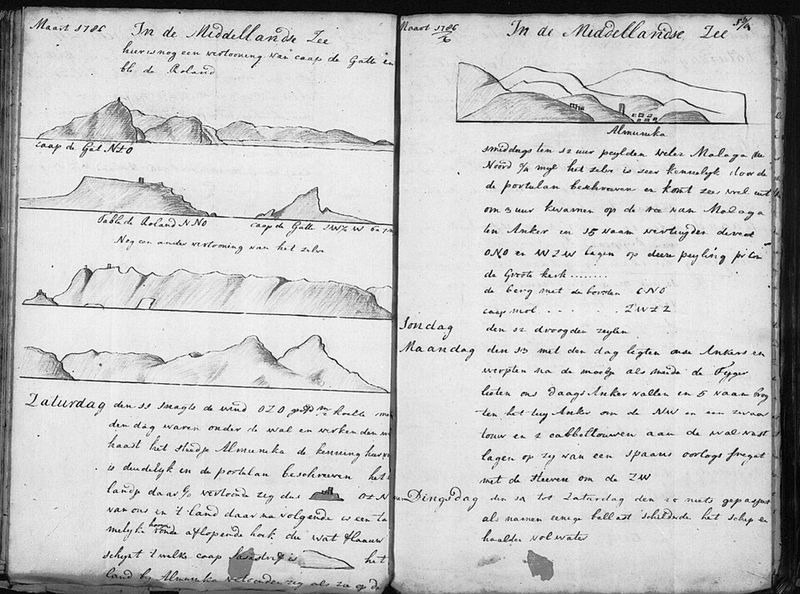 Maart 1786 In de Middellandse Zee
hier is nog een vertooning van caap de Gatte en
bli de Roland
Caap de Gat N t O
Tabli de Roland NNO caap de Gatte
Nog een ander vertooning van het zelve
Zaturdag den 11 snagts de wind OZO
den dag waren onder de wal en werkenden
haast het stedje Almuneka de kenning hier van
is duidelijk in de portulan beschreven het
landje daar vertoonde zig dus O t N
van ons in 't land daar na volgende is een ta
melyke ronde aflopende hoek die wat flaauw
schynt 't welke caap is het
land by Almuneka vertoonden zig als
Maart 1786 In de Middellandse Zee
Almuneka
smiddags ten 12 uur peylden weler Malaga
Noord myl het zelve is zeer kennelyk door
de portulan beschreven en komt zeer wel uit
om 3 uur kwamen op de ree van Malaga
ten Anker en 15 vaam vertuyden
ONO en WZW lagen op deese peyling
de Groote kerk
de berg met de
caap mol ZWZ
Sondag den 12 droogden zeylen
Maandag den 13 met den dag ligten onse Ankers en
werpten na de
lieten ons daags Anker vallen en 5 vaam
ten het tuy Anker om de NW en een zwaar
touw en 2 cabbeltouwen aan de wal vast
lagen op zy van een spaans oorlogs fregat
met de Steven om de ZW
Dingsdag den 14 tot Zaturdag den niets gepasseert
als namen eenige ballast schilderde het schip en
haalden vol water